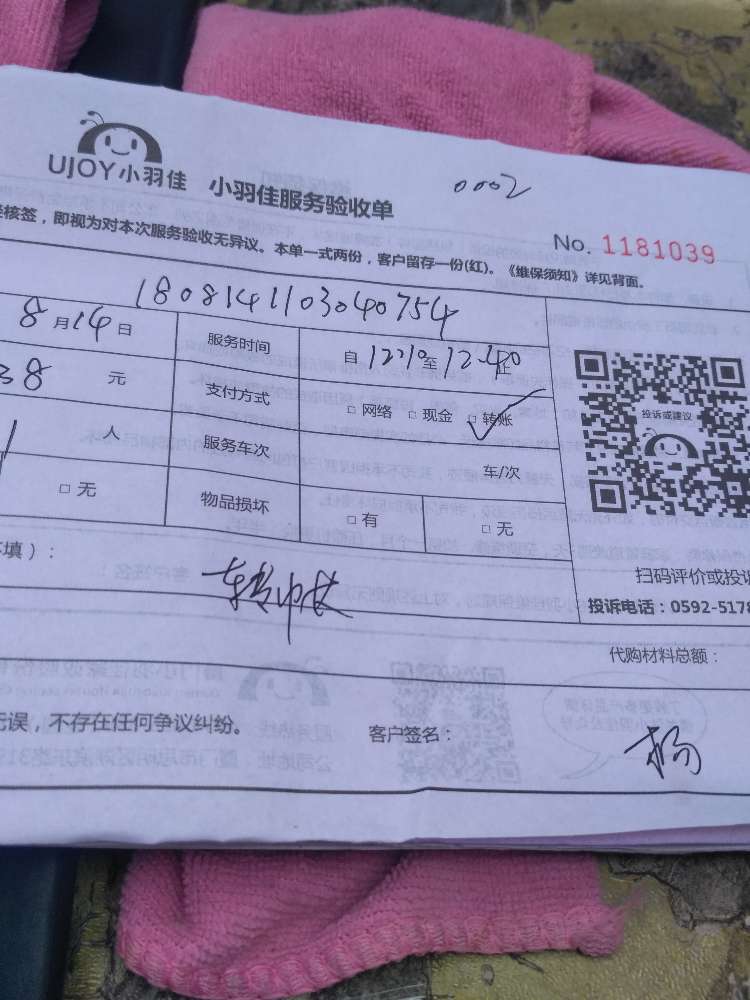 UJOY小羽佳 小羽佳服务验收单
0002
No. 1181039
核签，即视为对本次服务验收无异议。本单一式两份，客户留存一份(红)。《维保须知》详见背面。
180814110304754
8月14日 服务时间 自12:10至12:40止
38 元 支付方式 □ 网络 □ 现金 □ 转账
1 人 服务车次 车/次
□ 无 物品损坏 □ 有 □ 无
投诉或建议
扫码评价或投诉
填）：
投诉电话：0592-5178
代购材料总额：
无误，不存在任何争议纠纷。
客户签名：
杨